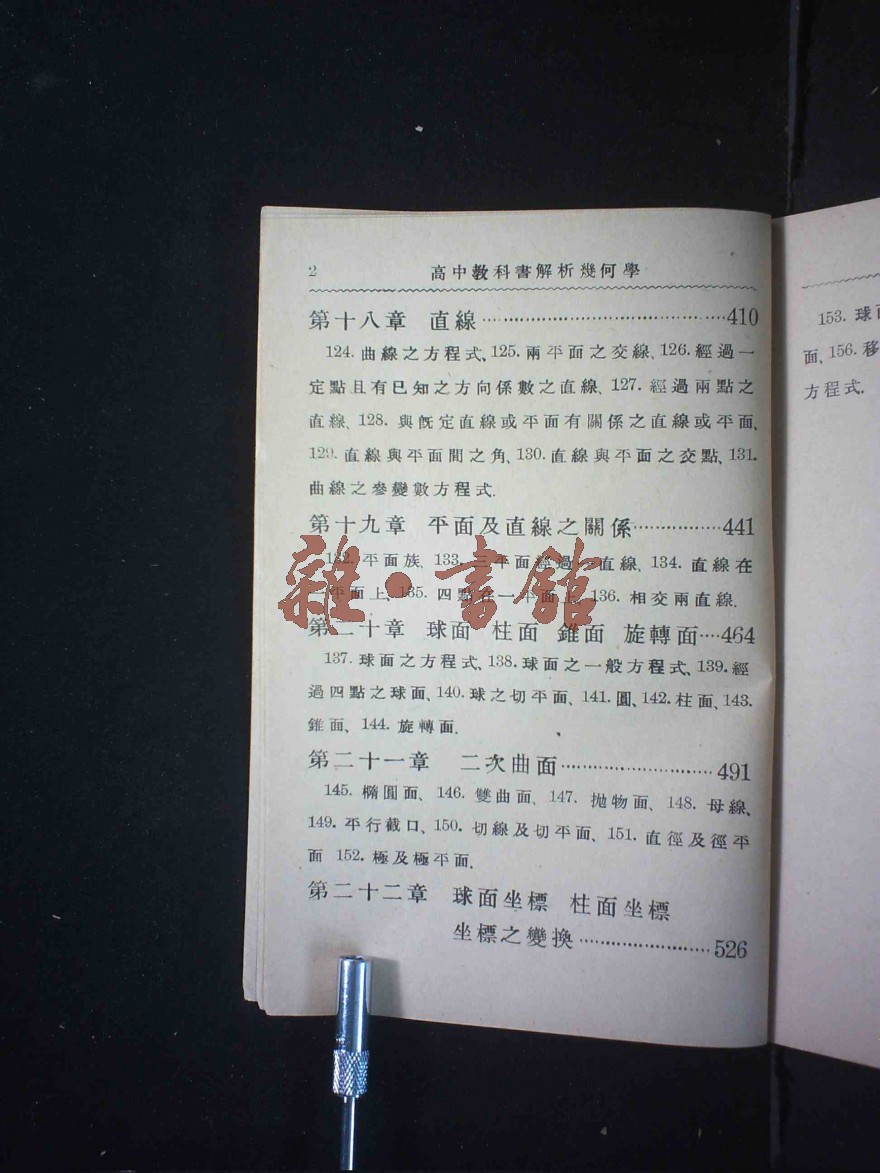 2 高中教科書解析幾何學
第十八章 直線……410
124. 曲線之方程式、125. 兩平面之交線、126. 經過一
定點且有已知之方向係數之直線、127. 經過兩點之
直線、128. 與旣定直線或平面有關係之直線或平面、
129. 直線與平面間之角、130. 直線與平面之交點、131.
曲線之參變數方程式.
第十九章 平面及直線之關係……441
132. 平面族、133. 三平面經過一直線、134. 直線在
一平面上、135. 四點在一平面上、136. 相交兩直線.
第二十章 球面 柱面 錐面 旋轉面……464
137. 球面之方程式、138. 球面之一般方程式、139. 經
過四點之球面、140. 球之切平面、141. 圓、142. 柱面、143.
錐面、144. 旋轉面.
第二十一章 二次曲面……491
145. 橢圓面、146. 雙曲面、147. 拋物面、148. 母線、
149. 平行截口、150. 切線及切平面、151. 直徑及徑平
面 152. 極及極平面.
第二十二章 球面坐標 柱面坐標
坐標之變換……526
雜·書館
153. 球面
面、156. 移
方程式.